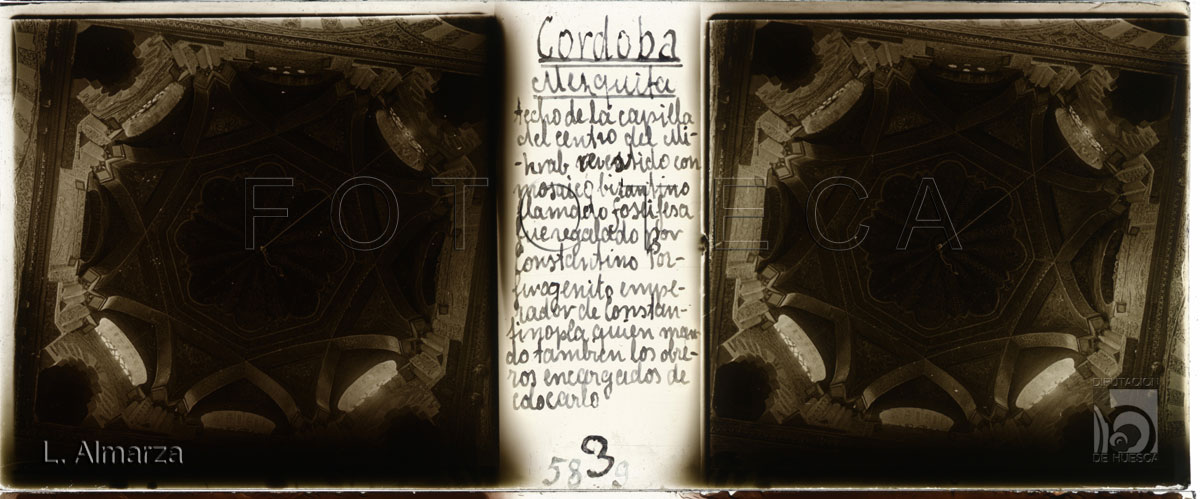 Cordoba
Mezquita
techo de la capilla
del centro del Mi-
-hrab revestido con
mosaico bizantino
llamado foseifesa
fue regalado por
Constantino Por-
firogenito empe-
rador de Constan-
tinopla quien man-
do tambien los obre-
ros encargados de
colocarlo
3
58 9
FOTOTECA
L. Almarza
DIPUTACION
DE HUESCA